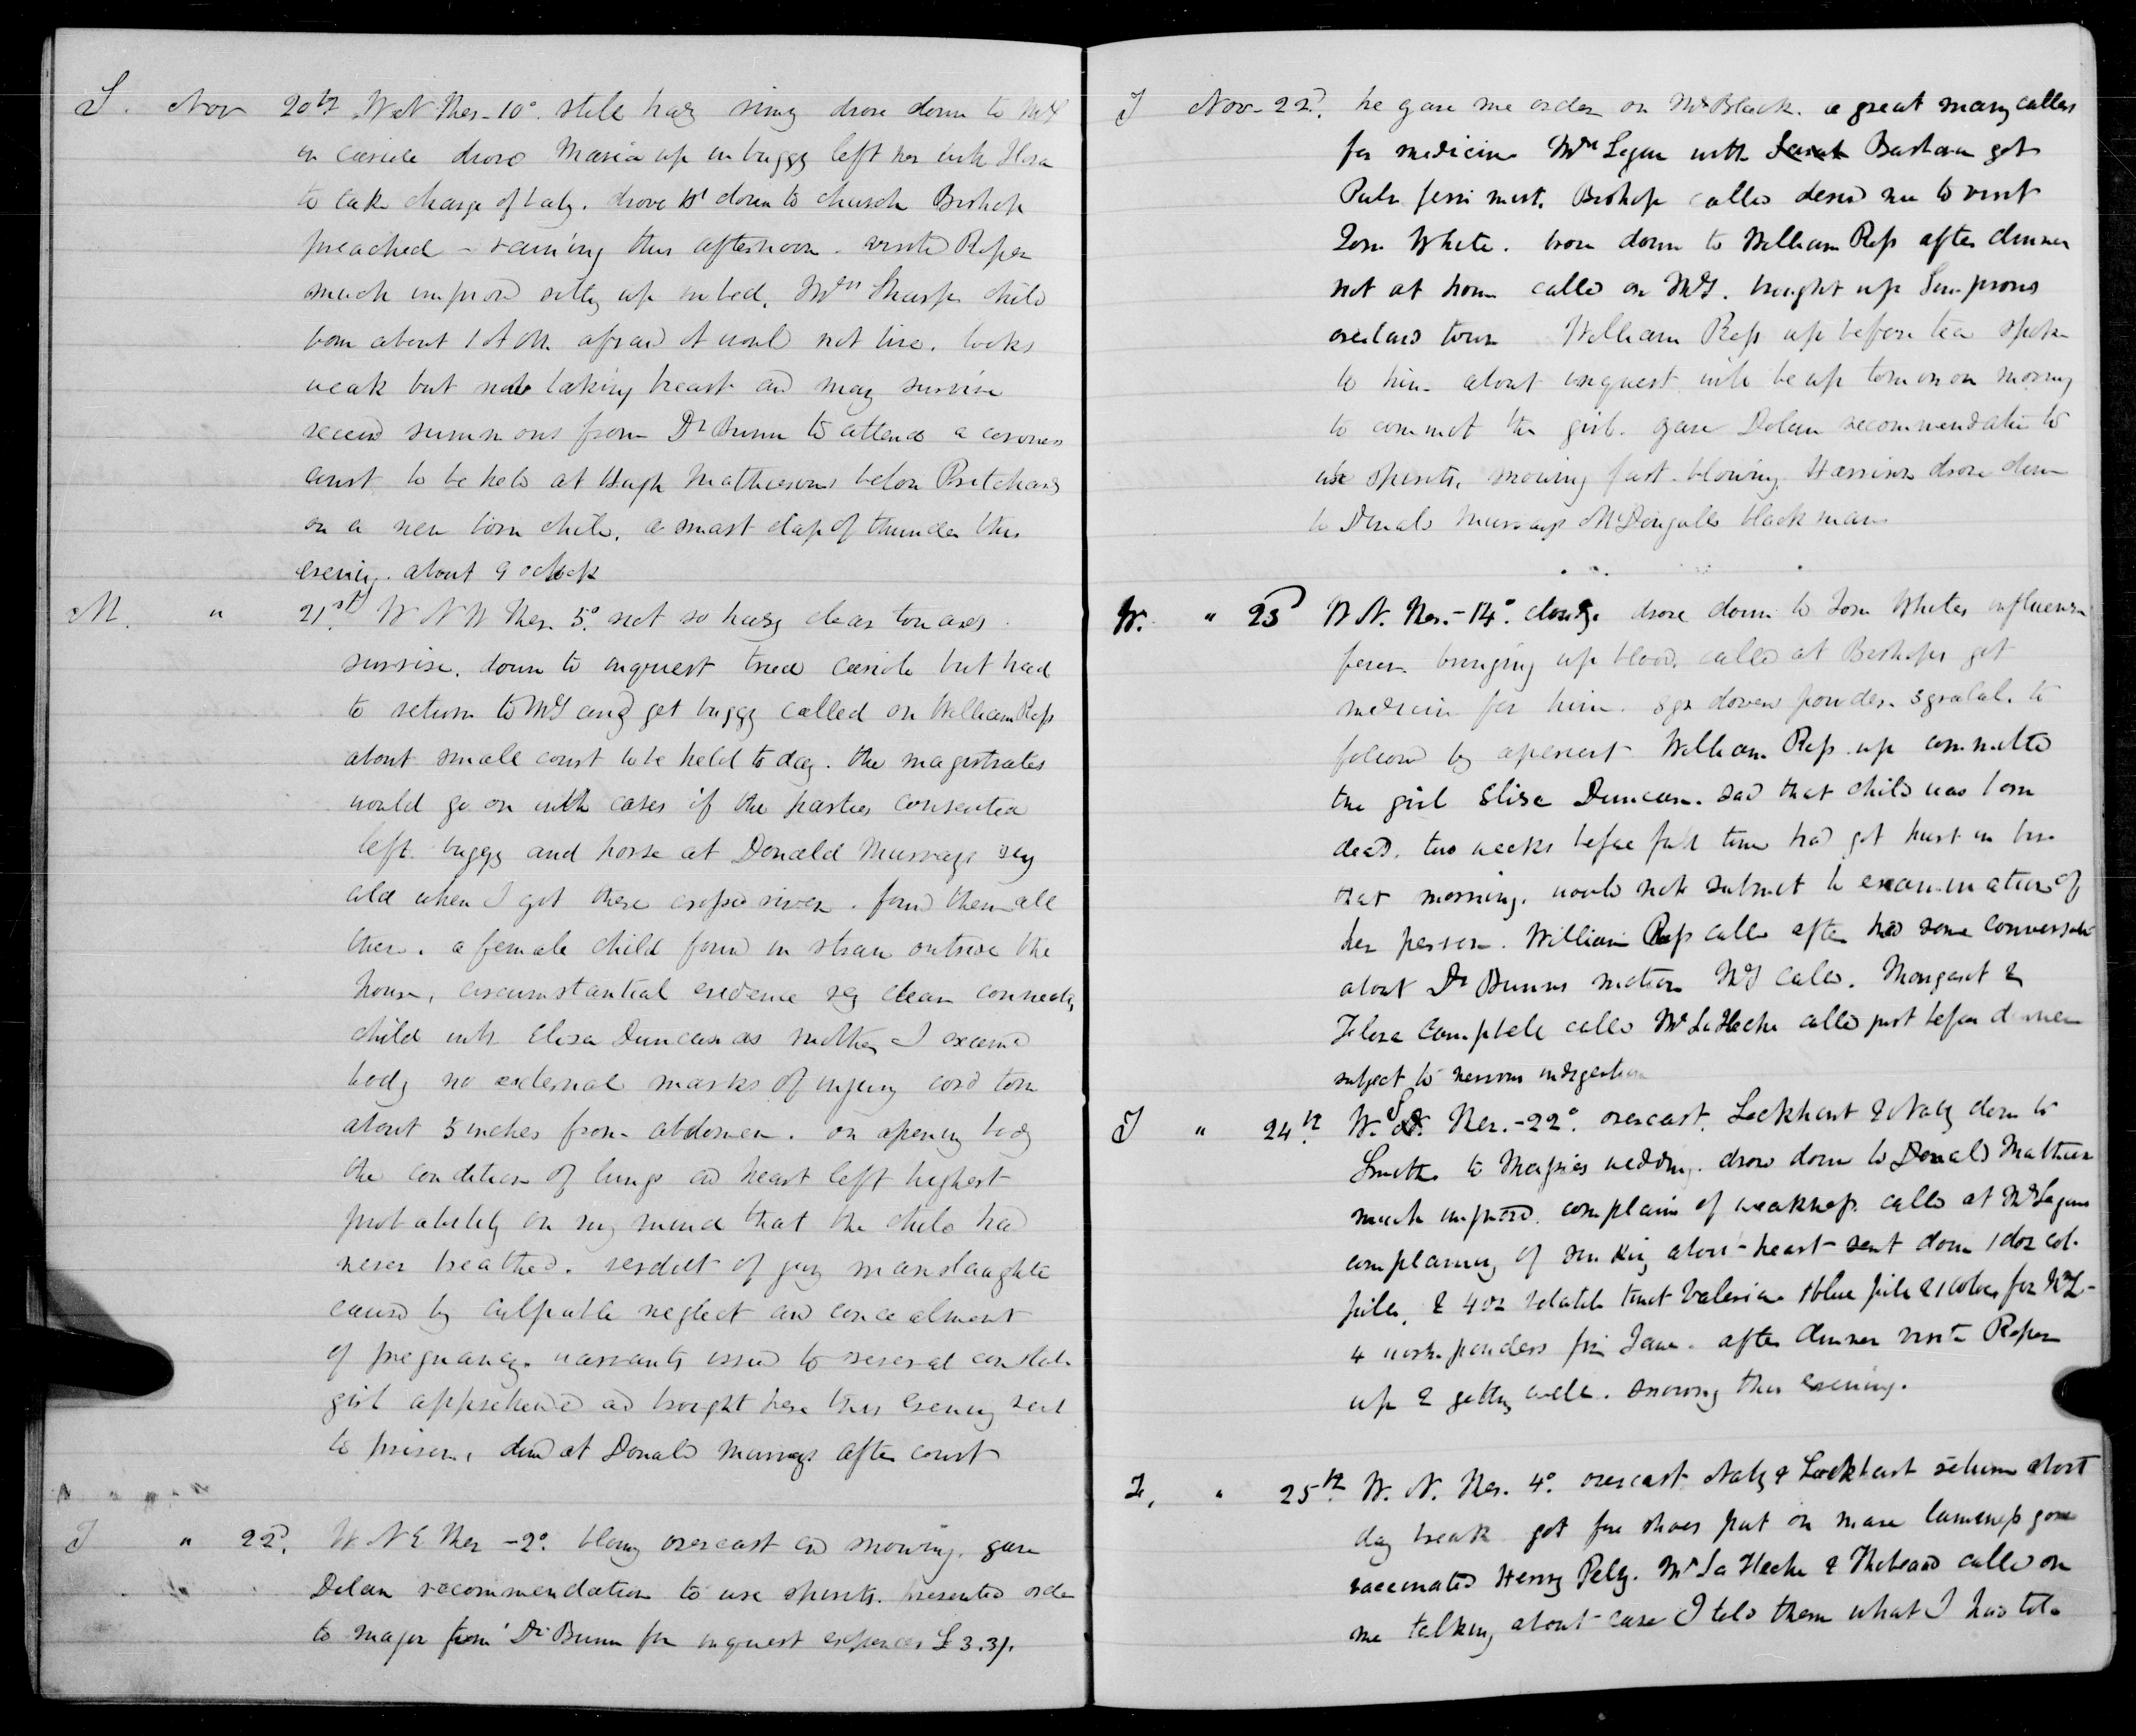 S. Nov 20th W N Ther -10° still hazy rimy drove down to McT
in cariole drove Maria up in buggy left her with Flora
to take charge of baby. drove down to church Bishop
preached - raining this afternoon. visited Roper
much improvd sitting up in bed. Mrs Sharps child
born about 1 A M. afraid it would not live. looks
weak but now taking breast and may survive
received summons from Dr Bunn to attend a coroners
court to be held at Hugh Mathiesons below Pritchards
on a new born child. a smart clap of thunder this
evening. about 9 oclock
M. " 21st W N W Ther. 5° not so hazy clear towards
sunrise. down to inquest tried cariole but had
to return to McT and get buggy called on William Ross
about small court to be held to day. the magistrates
would go on with cases if the parties consented
left buggy and horse at Donald Murrays very
cold when I got there crossed river. found them all
there. a female child found in straw outside the
house, circumstantial evidence very clear connecting
child with Eliza Duncan as mother I examined
body no external marks of injury cord torn
about 5 inches from abdomen. on opening body
the condition of lungs and heart left highest
probability on my mind that the child had
never breathed. verdict of jury manslaughter
caused by culpable neglect and concealment
of pregnancy. warrants issued to several constab.
girl apprehended and brought here this evening sent
to prison. dined at Donald Murrays after court
T " 22d. W N E Ther -2° blowing overcast and snowing. gave
Dolan recommendation to use spirits. presented order
to major from Dr Bunn for inquest expences £3.3/.
T Nov. 22d. he gave me order on Mr Black. a great many callers
for medicine Mrs Logan with Sarah Barbara got
Pulv ferri mist. Bishop called desired me to visit
Tom White. down to William Ross after dinner
not at home called on McT. brought up Simpsons
overland tour William Ross up before tea spoke
to him about inquest will be up tomorrow morning
to commit the girl. gave Dolan recommendation to
use spirits. snowing fast. blowing. Harrison drove down
to Donald Murrays McDougalls black mare
W. " 23d W N. Ther. -14° cloudy. drove down to Tom Whites influenza
fever bringing up blood. called at Bishops got
medicine for him. 5gr dovers powder. 3gr calal. to
follow by aperient William Ross up committed
the girl Eliza Duncan. said that child was born
dead. two weeks before full time had got hurt in
that morning. would not submit to examination of
her person. William Ross called after had some conversation
about Dr Bunns motion McT called. Margaret &
Flora Campbell called Mr LaFleche called just before dinner
subject to nervous indigestion
T " 24th. W. S. Ther. -22° overcast. Lockhart & Naty down to
Smiths to Magies wedding. drove down to Donald Mathieson
much improved. complains of weakness. called at Mr Logans
complaining of sinking about heart sent down 1 doz col.
pills. & 4 oz volatile tinct valerian 1 blue pill & 1 for Mr L-
4 powders for Jane. after dinner visited Roper
up & getting well. snowing this evening.
F. " 25th. W. N. Ther. 4° overcast Naty & Lockhart returned about
day break got fore shoes put on mare lameness gone
vaccinated Henry Pelly. Mr LaFleche & Thibeaud called on
me talking about case I told them what I had told